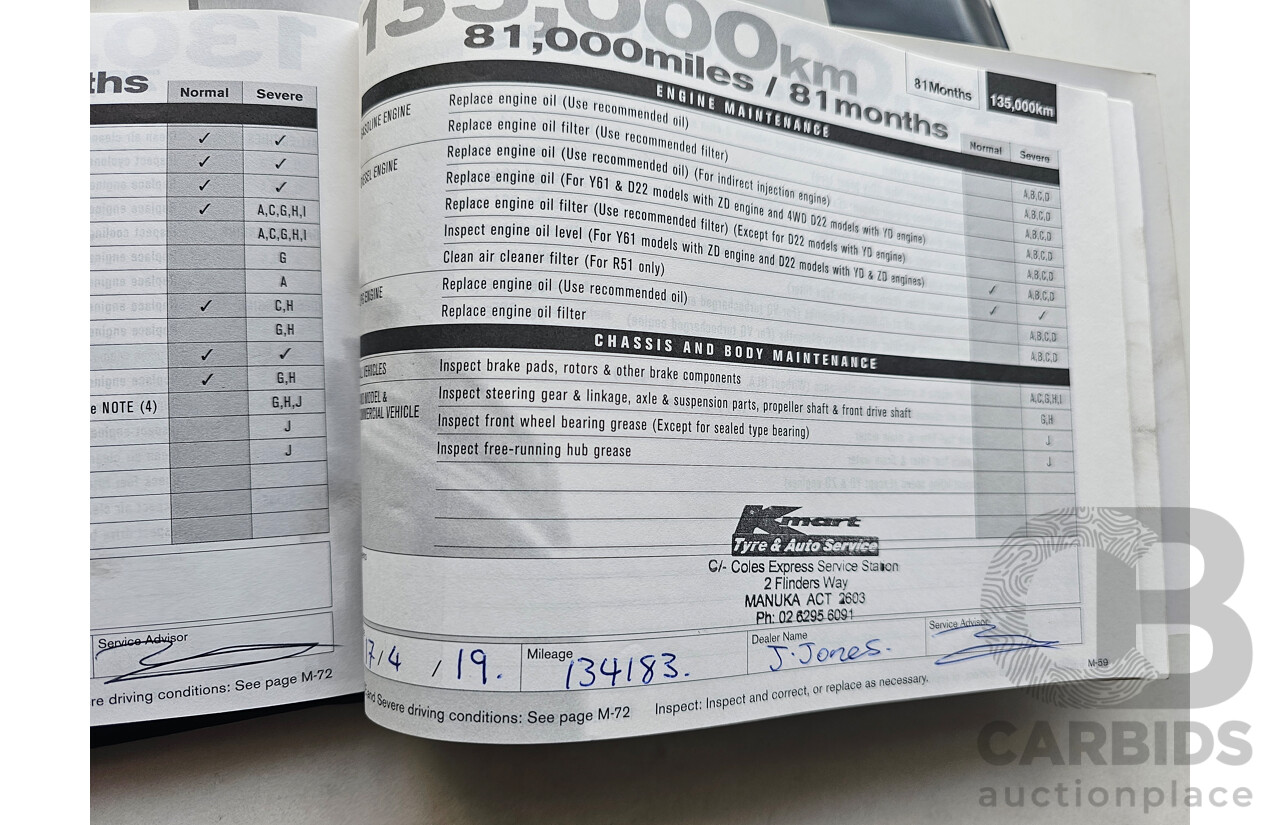 ths
Normal Severe
✓ ✓
✓ ✓
✓ ✓
✓ A,C,G,H,I
A,C,G,H,I
G
A
✓ C,H
G,H
✓ ✓
✓ G,H
e NOTE (4) G,H,J
J
J
Service Advisor
re driving conditions: See page M-72
135,000km
81,000miles / 81months
81Months 135,000km
ENGINE MAINTENANCE
Normal Severe
ASOLINE ENGINE Replace engine oil (Use recommended oil) A,B,C,D
Replace engine oil filter (Use recommended filter) A,B,C,D
ESEL ENGINE Replace engine oil (Use recommended oil) (For indirect injection engine) A,B,C,D
Replace engine oil (For Y61 & D22 models with ZD engine and 4WD D22 models with YD engine) A,B,C,D
Replace engine oil filter (Use recommended filter) (Except for D22 models with YD engine) A,B,C,D
Inspect engine oil level (For Y61 models with ZD engine and D22 models with YD & ZD engines) ✓ A,B,C,D
Clean air cleaner filter (For R51 only) ✓ ✓
ENGINE Replace engine oil (Use recommended oil) A,B,C,D
Replace engine oil filter A,B,C,D
CHASSIS AND BODY MAINTENANCE
VEHICLES Inspect brake pads, rotors & other brake components A,C,G,H,I
MODEL & Inspect steering gear & linkage, axle & suspension parts, propeller shaft & front drive shaft G,H
MERCIAL VEHICLE Inspect front wheel bearing grease (Except for sealed type bearing) J
Inspect free-running hub grease J
Kmart
Tyre & Auto Service
C/- Coles Express Service Station
2 Flinders Way
MANUKA ACT 2603
Ph: 02 6295 6091
7/4/19. Mileage 134183. Dealer Name J. Jones. Service Advisor
M-59
and Severe driving conditions: See page M-72 Inspect: Inspect and correct, or replace as necessary.
CARBIDS
auctionplace